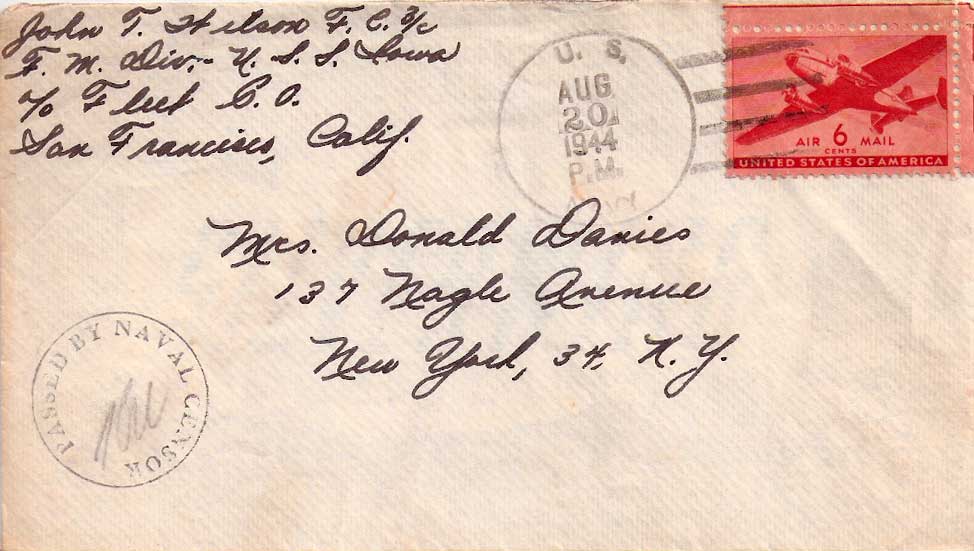 John T. Hilson F.C. 3/c
F. M. Div. - U. S. S. Iowa
℅ Fleet P. O.
San Francisco, Calif.
U. S.
AUG
20
1944
P.M.
AIR 6 MAIL
CENTS
UNITED STATES OF AMERICA
Mrs. Donald Danies
137 Nagle Avenue
New York, 34, N. Y.
PASSED BY NAVAL CENSOR